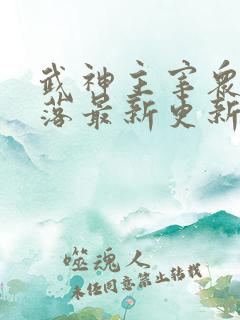 武神主宰衆
落最新更新
噬魂人
未经同意禁止转载